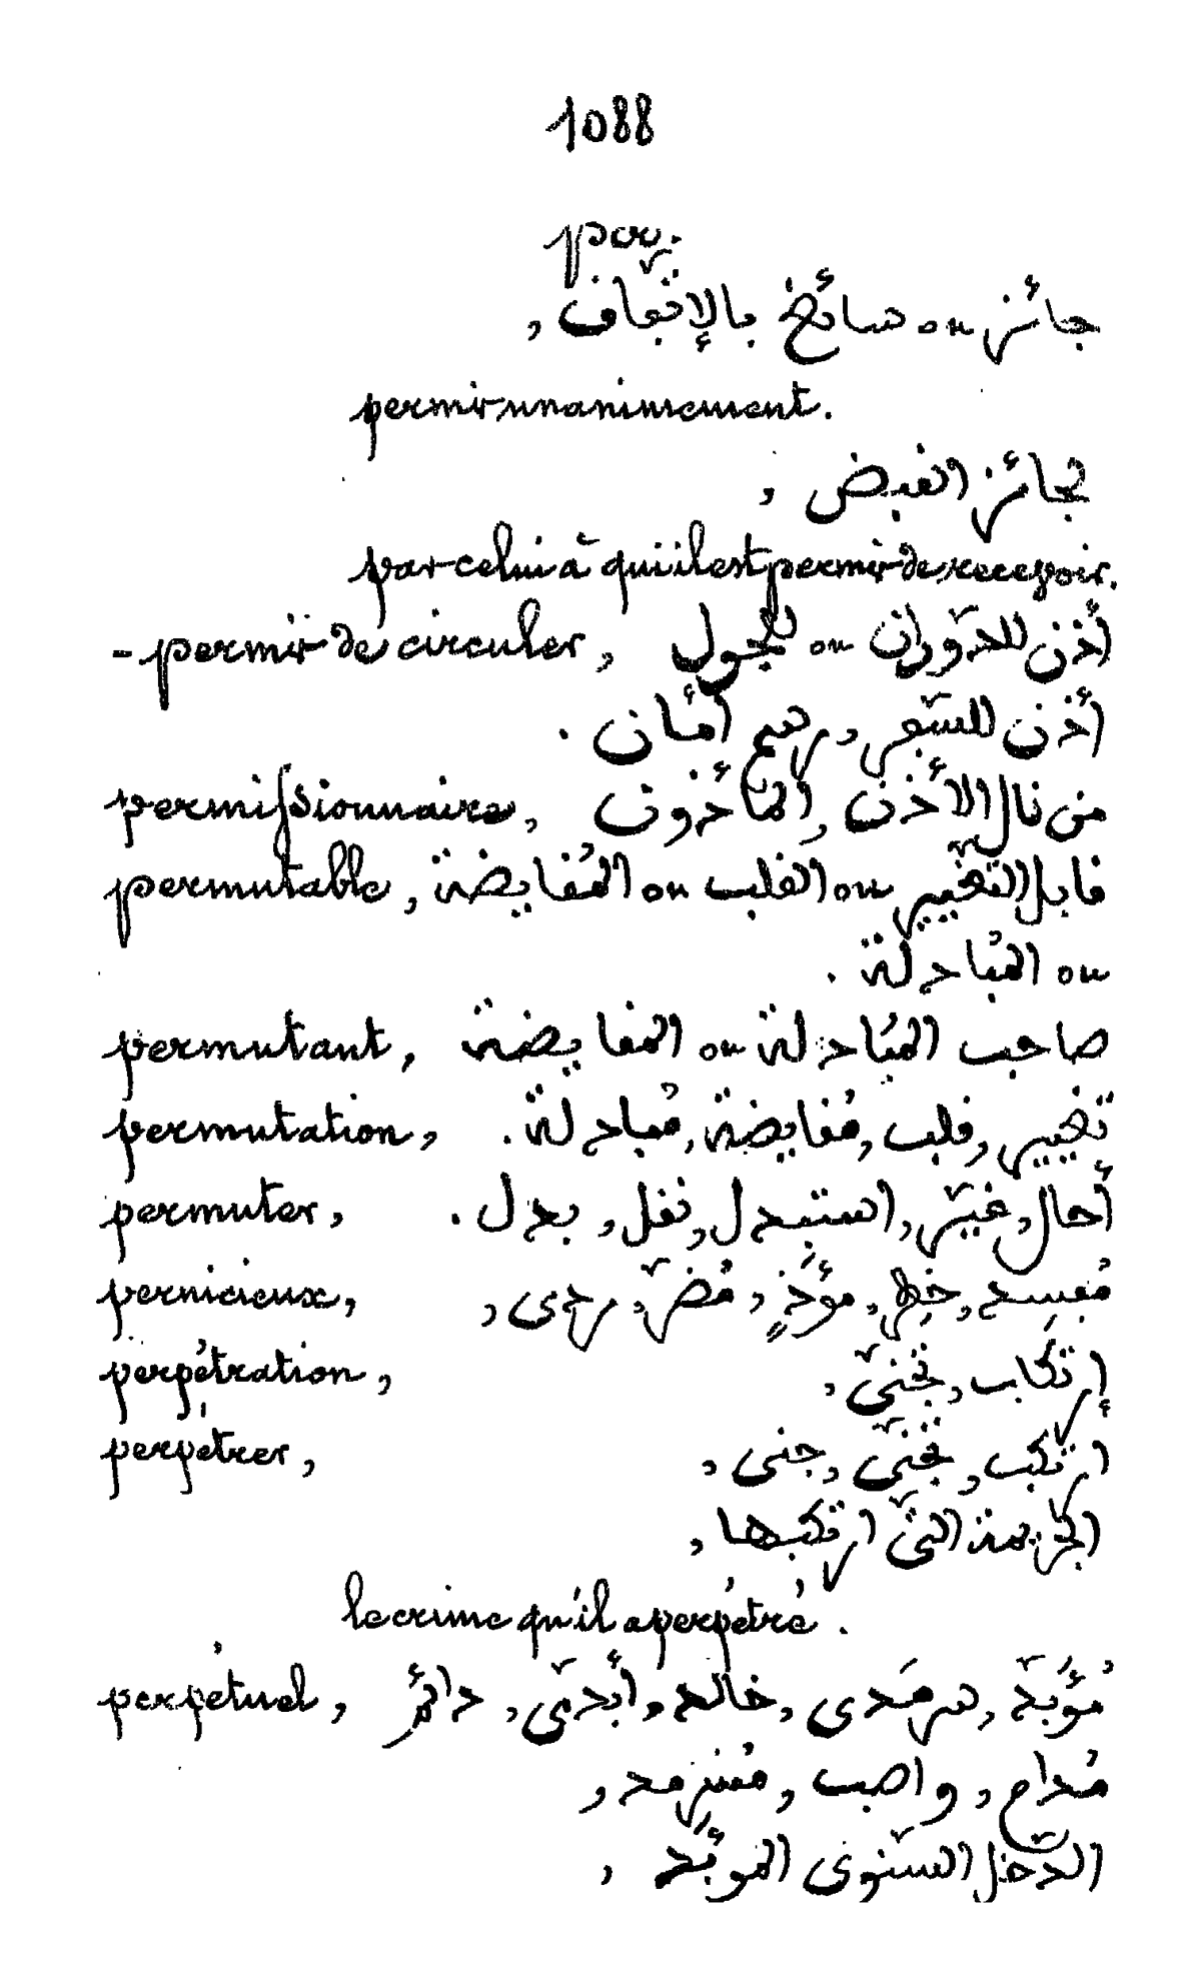 1088
per.
جائز ou سائغ بالإتّفاق,
permis unanimement.
لجائز القبض,
par celui à qui il est permis de recevoir.
- permis de circuler, أذن للدّوران ou للجول
أذن للسّفر, رسم أمان.
permissionnaire, من نال الأذن, المأذون
permutable, قابل التّغيير ou القلب ou المُقايضة
ou المُبادلة.
permutant, صاحب المُبادلة ou المقايضة
permutation, تغيير, قلب, مُقايضة, مُبادلة.
permuter, أحال, غيّر, استبدل, نقل, بدل.
pernicieux, مُفسِد, خطِر, مؤذٍ, مُضرّ, ردى,
perpétration, إرتكاب, تجنّى,
perpétrer, ارتكب, تجنّى, جنى,
الجريمة التّى ارتكبها,
le crime qu'il a perpétré.
perpétuel, مُؤبّد, سرمَدى, خالد, أبدىّ, دائم,
مُدام, واصب, مُسَرمد,
الدّخل السّنوى المؤبّد,